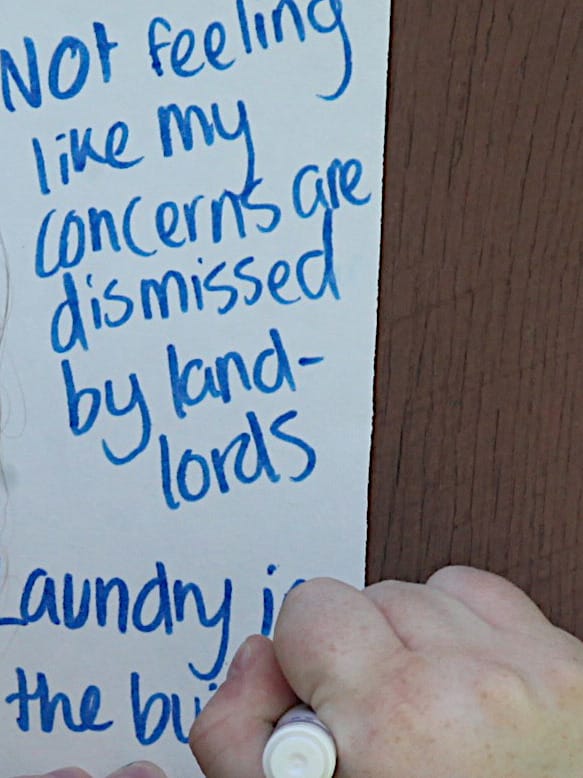 Not feeling
like my
concerns are
dismissed
by land-
lords
Laundry
the